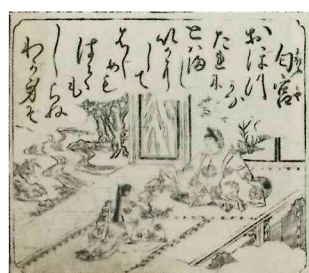 匂宮
おほつ
かな
たれに
とはまし
いかに
して
はじめも
はても
しらぬ
わか身そ